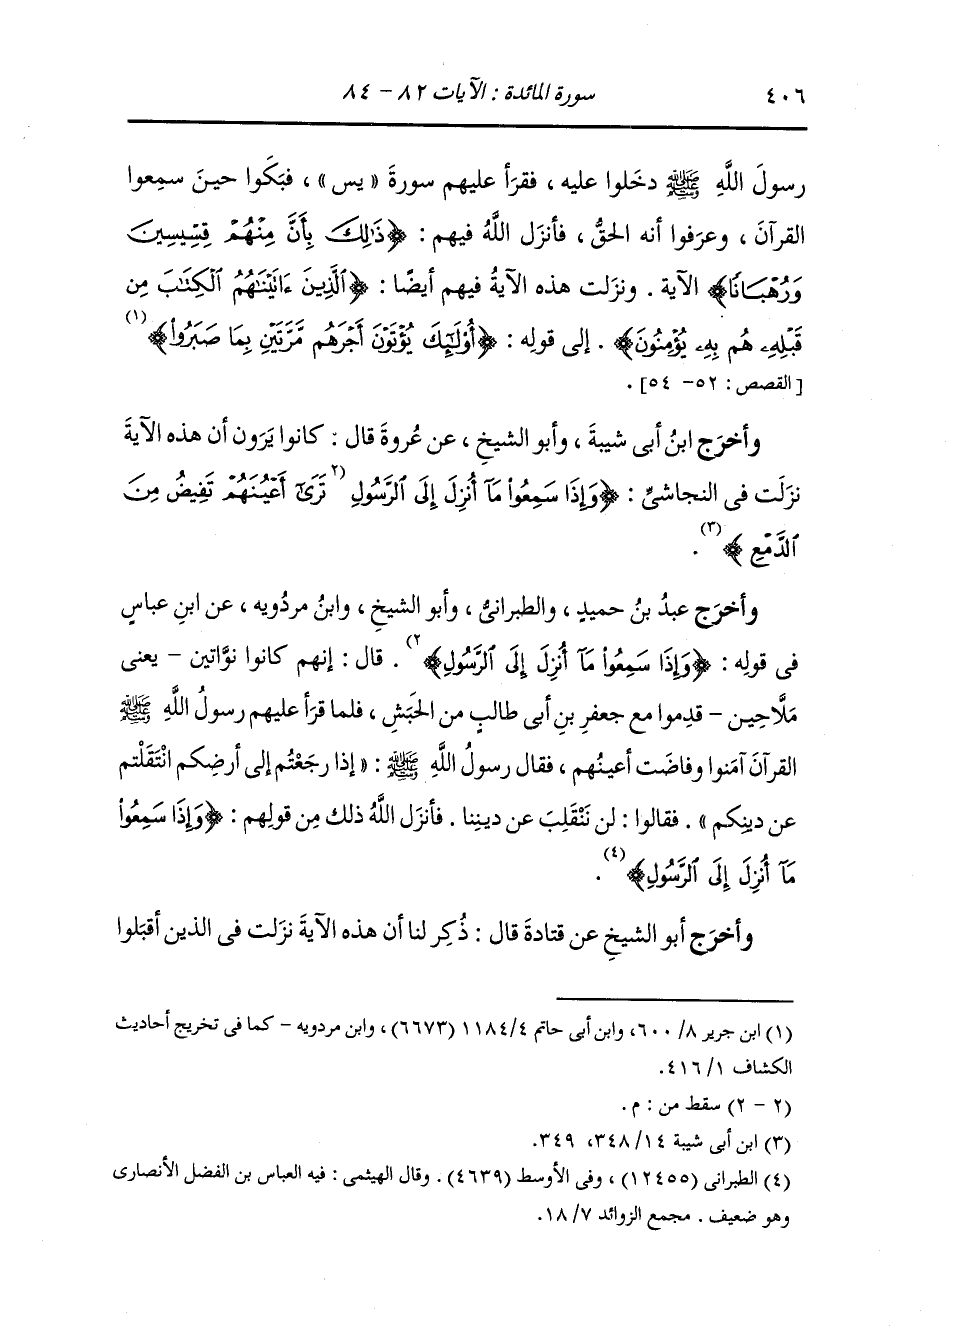 ٤٠٦ سورة المائدة : الآيات ٨٢ – ٨٤
رسولَ اللَّهِ ﷺ دخَلوا عليه ، فقرَأ عليهم سورةَ « يس » ، فبَكَوا حينَ سمِعوا
القرآنَ ، وعرَفوا أنه الحقُّ ، فأنزَل اللَّهُ فيهم : ﴿ذَٰلِكَ بِأَنَّ مِنْهُمْ قِسِّيسِينَ
وَرُهْبَانًا﴾ الآية . ونزَلت هذه الآيةُ فيهم أيضًا : ﴿ٱلَّذِينَ ءَاتَيْنَٰهُمُ ٱلْكِتَٰبَ مِن
قَبْلِهِۦ هُم بِهِۦ يُؤْمِنُونَ﴾ . إلى قولِه : ﴿أُوْلَٰٓئِكَ يُؤْتَوْنَ أَجْرَهُم مَّرَّتَيْنِ بِمَا صَبَرُواْ﴾(١)
[القصص : ٥٢– ٥٤] .
وأخرَج ابنُ أبى شيبةَ ، وأبو الشيخِ ، عن عُروةَ قال : كانوا يَرَون أن هذه الآيةَ
نزَلَت فى النجاشىِّ : ﴿وَإِذَا سَمِعُواْ مَآ أُنزِلَ إِلَى ٱلرَّسُولِ (٢تَرَىٰٓ أَعْيُنَهُمْ تَفِيضُ مِنَ
ٱلدَّمْعِ﴾(٣) .
وأخرَج عبدُ بنُ حميدٍ ، والطبرانىُّ ، وأبو الشيخِ ، وابنُ مردُويه ، عن ابنِ عباسٍ
فى قولِه : ﴿وَإِذَا سَمِعُواْ مَآ أُنزِلَ إِلَى ٱلرَّسُولِ﴾٢) . قال : إنهم كانوا نوَّاتين – يعنى
مَلَّاحِين – قدِموا مع جعفرِ بنِ أبى طالبٍ من الحَبَشِ ، فلما قرَأ عليهم رسولُ اللَّهِ ﷺ
القرآنَ آمَنوا وفاضَت أعينُهم ، فقال رسولُ اللَّهِ ﷺ : « إذا رجَعْتُم إلى أرضِكم انْتَقَلْتم
عن دينِكم » . فقالوا : لن نَنْقَلِبَ عن دينِنا . فأنزَل اللَّهُ ذلك مِن قولِهم : ﴿وَإِذَا سَمِعُواْ
مَآ أُنزِلَ إِلَى ٱلرَّسُولِ﴾(٤) .
وأخرَج أبو الشيخِ عن قتادةَ قال : ذُكِر لنا أن هذه الآيةَ نزَلت فى الذين أقبَلوا
(١) ابن جرير ٨/ ٦٠٠، وابن أبى حاتم ١١٨٤/٤ (٦٦٧٣) ، وابن مردويه – كما فى تخريج أحاديث
الكشاف ١/ ٤١٦.
(٢ – ٢) سقط من : م.
(٣) ابن أبى شيبة ١٤/ ٣٤٨، ٣٤٩.
(٤) الطبرانى (١٢٤٥٥) ، وفى الأوسط (٤٦٣٩) . وقال الهيثمى : فيه العباس بن الفضل الأنصارى
وهو ضعيف . مجمع الزوائد ٧/ ١٨.